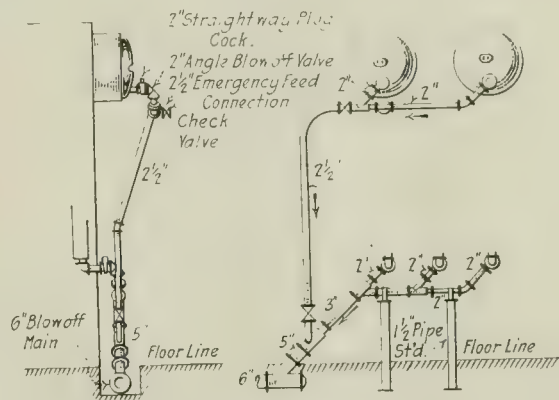 2"Straightway Plug
Cock.
2"Angle Blowoff Valve
2½"Emergency Feed
Connection
Check
Valve
2½"
6"Blowoff
Main
5"
Floor Line
2"
2"
2½"
2"
2"
2"
2"
3"
5"
6"
1½"Pipe
St'd.
Floor Line